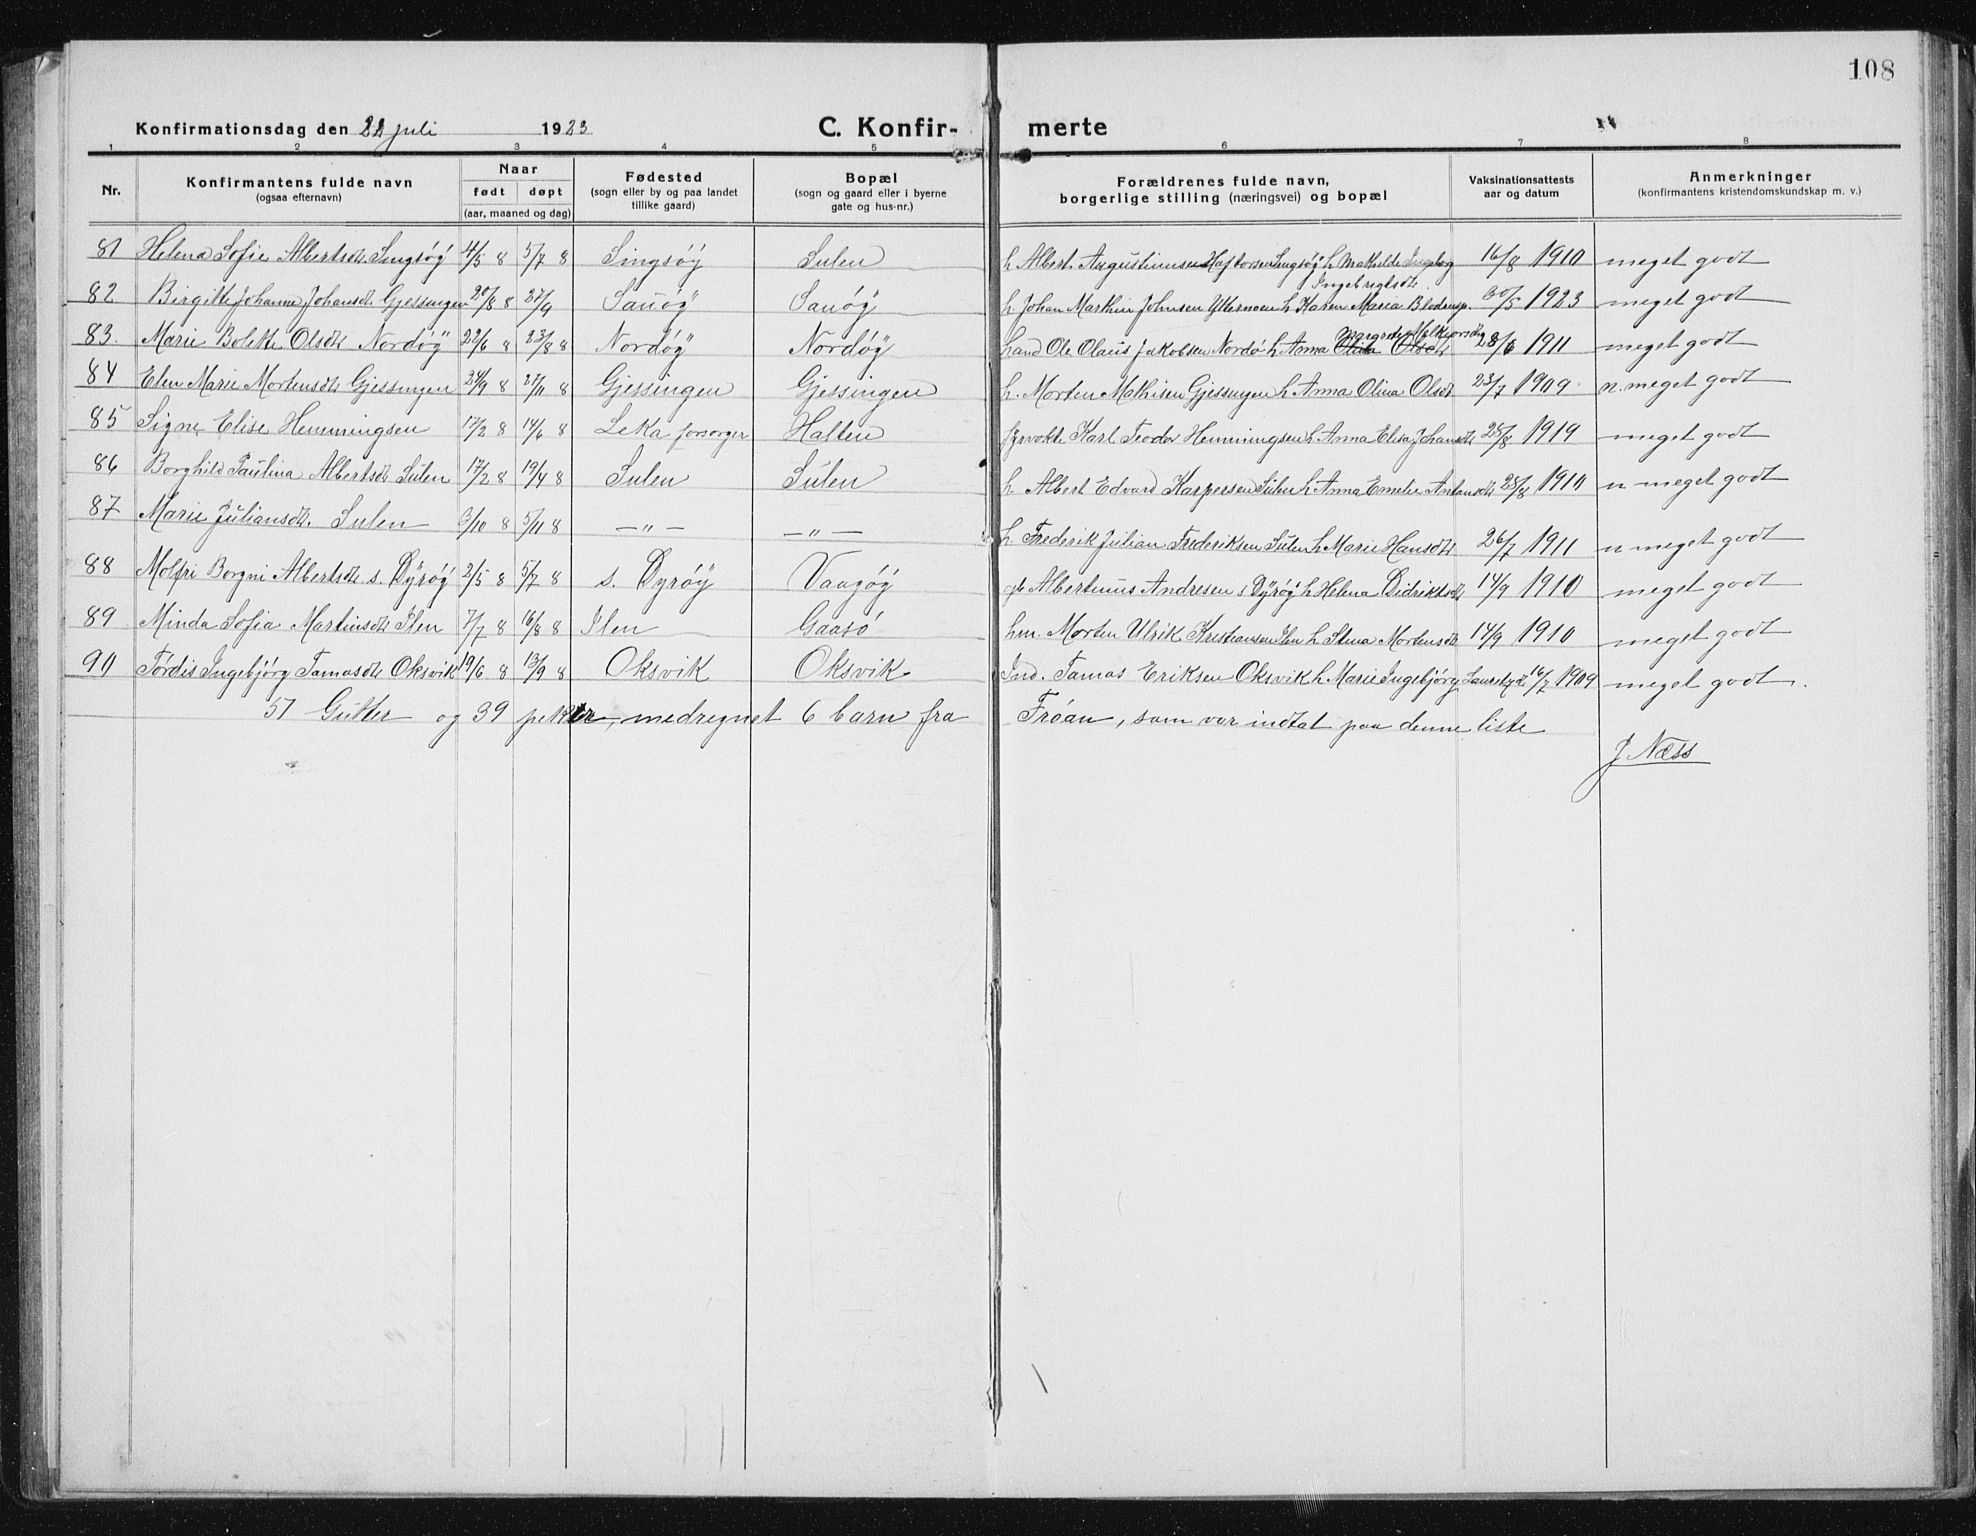 108
Konfirmationsdag den 22 juli 1923 C. Konfir- merte
1 2 3 4 5 6 7 8
Nr. Konfirmantens fulde navn (ogsaa efternavn) Naar født døpt (aar, maaned og dag) Fødested (sogn eller by og paa landet tillike gaard) Bopæl (sogn og gaard eller i byerne gate og hus-nr.) Forældrenes fulde navn, borgerlige stilling (næringsvei) og bopæl Vaksinationsattests aar og datum Anmerkninger (konfirmantens kristendomskundskap m. v.)
81 Helena Sofie Albertsdt. Singsøy 4/5 8 5/7 8 Singsøy Sulen h Albert Augustinusen Haftorsen Singsøy h Mathilde Ingebregtsdt. 16/8 1910 meget godt
82 Birgitte Johanne Johansdt Gjessingen 20/8 8 27/9 Sauøy Sauøy h. Johan Marthin Johnsen Ytternoen h Karen Maria 30/5 1923 meget godt
83. Marie Bolette Olsdt Nordøy 22/6 8 23/8 8 Nordøy Nordøy Land Ole Olaus Jakobsen Nordø h Anna Margrete Melkiorsdt 28/6 1911 meget godt
84 Elen Marie Mortensdt Gjessingen 24/9 8 27/11 8 Gjessingen Gjessingen h. Morten Mathisen Gjessingen h Anna Olina Olsdt 23/7 1909 n. meget godt
85 Signe Elise Hemmingsen 17/2 8 14/6 8 Leka forsorger Halten fyrvokte Karl Teodor Hemmingsen h Anna Elisa Johansdt 25/8 1919 meget godt
86 Borghild Paulina Albertsdt Sulen 17/2 8 19/4 8 Sulen Sulen h. Albert Edvard Kaspersen Sulen h Anna Emelie Antonsdt 25/8 1910 n meget godt
87 Marie Juliansdt. Sulen 3/10 8 5/11 8 —"— —"— h. Frederik Julian Frederiksen Sulen h Marie Hansdt 26/7 1911 n meget godt
88 Molfri Borgni Albertsdt s. Dyrøy 2/5 8 5/7 8 s. Dyrøy Vaagøy gb Albertinus Andresen s Dyrøy h Helena Didriksdt 14/9 1910 meget godt
89 Minda Sofia Martinsdt Ilen 7/7 8 16/8 8 Ilen Gaasø hm. Morten Ulrik Kristiansen Ilen h Stina Mortensdt 14/9 1910 meget godt
90 Tordis Ingebjørg Tomasdt Oksvik 19/6 8 13/9 8 Oksvik Oksvik Ind. Tomas Eriksen Oksvik h Marie Ingebjørg Lauritsdt 16/7 1909 meget godt.
51 Gutter og 39 pikter, medregnet 6 barn fra Frøan, som var indtat paa denne liste
J Næss